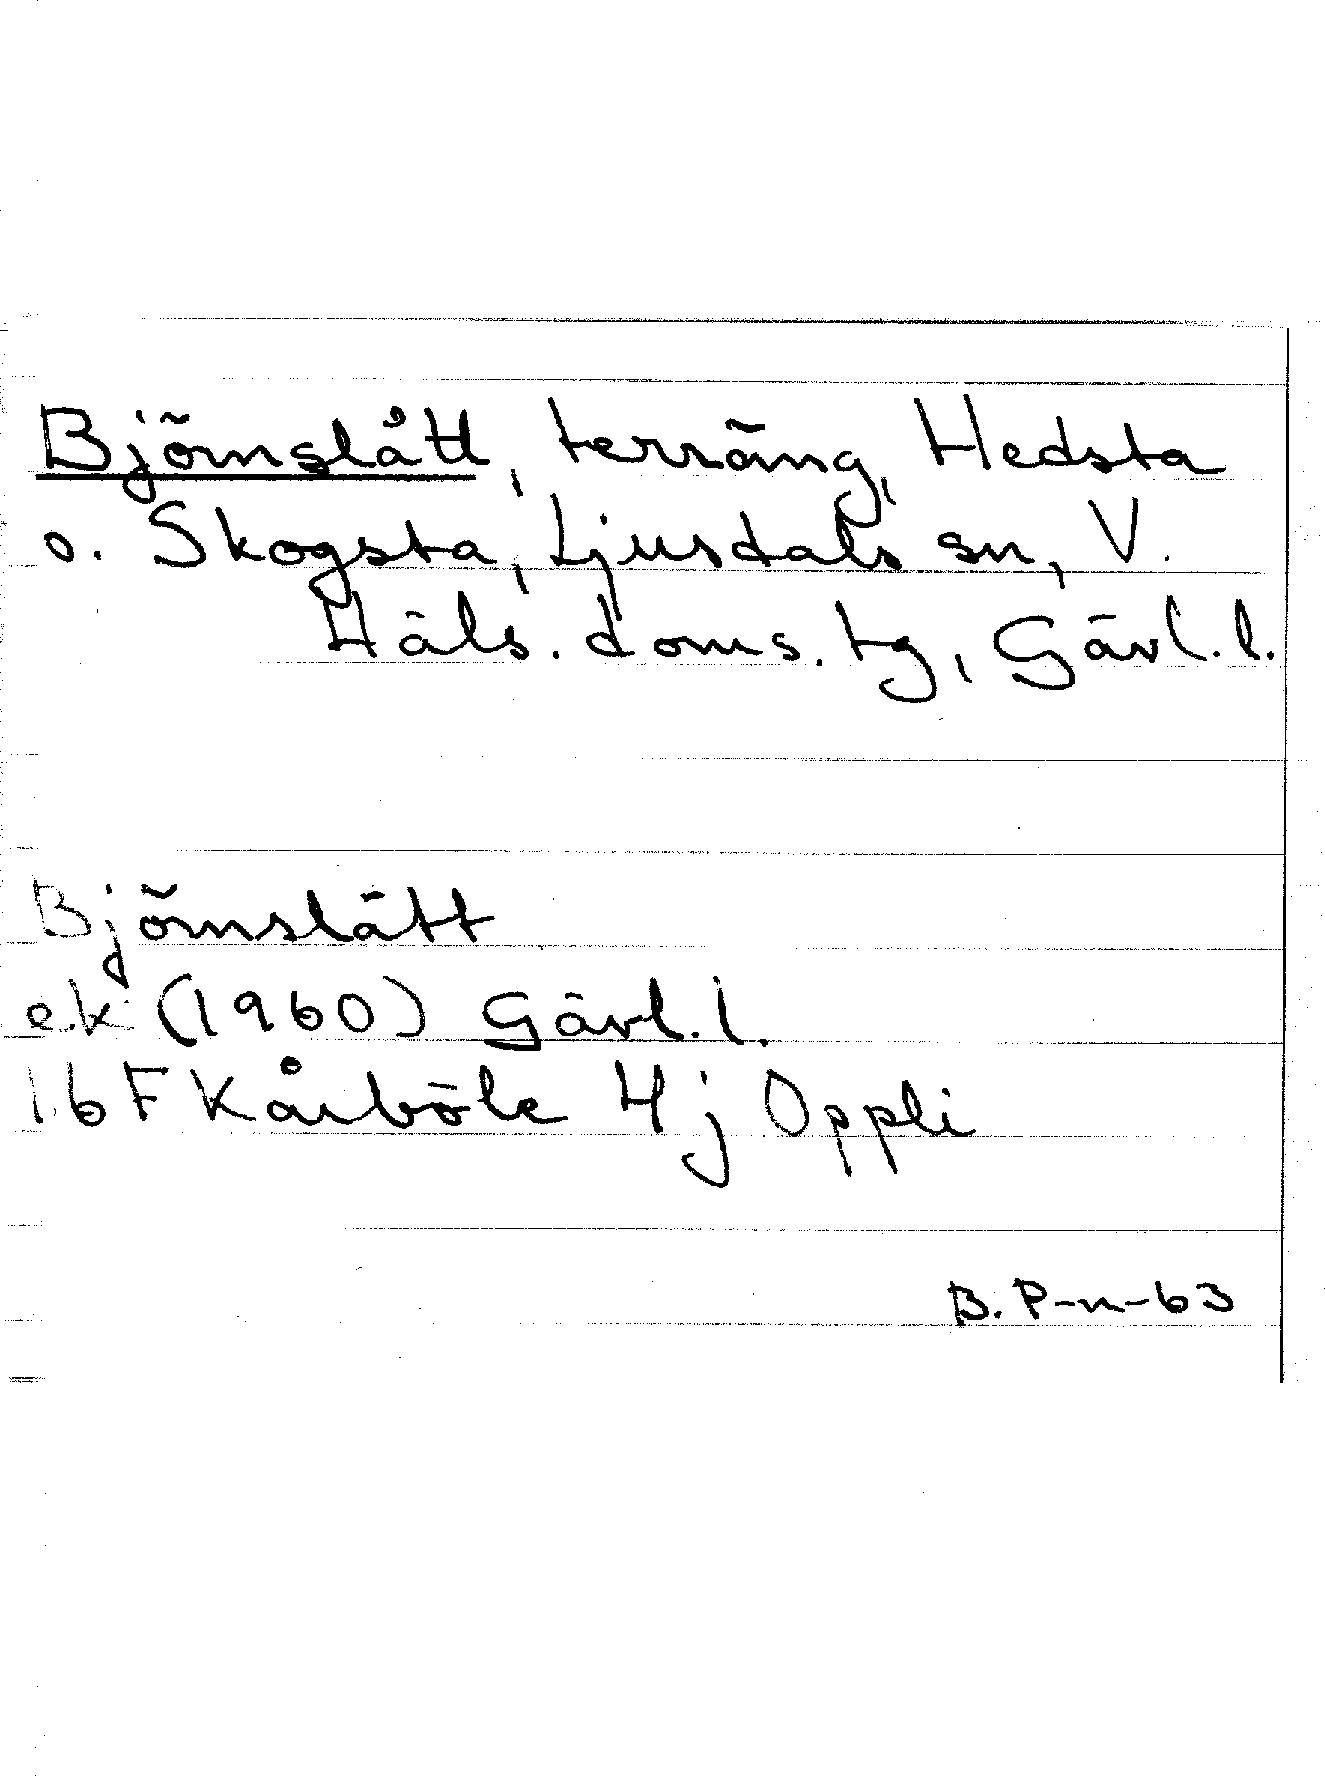 Björnslått, terräng, Hedsta
o. Skogsta, Ljusdals sn, V.
Häls. doms. tg, Gävl. l.
Björnslått
e.k (1960) Gävl. l.
16F Kårböle 4j Oppli
B. P-n-63